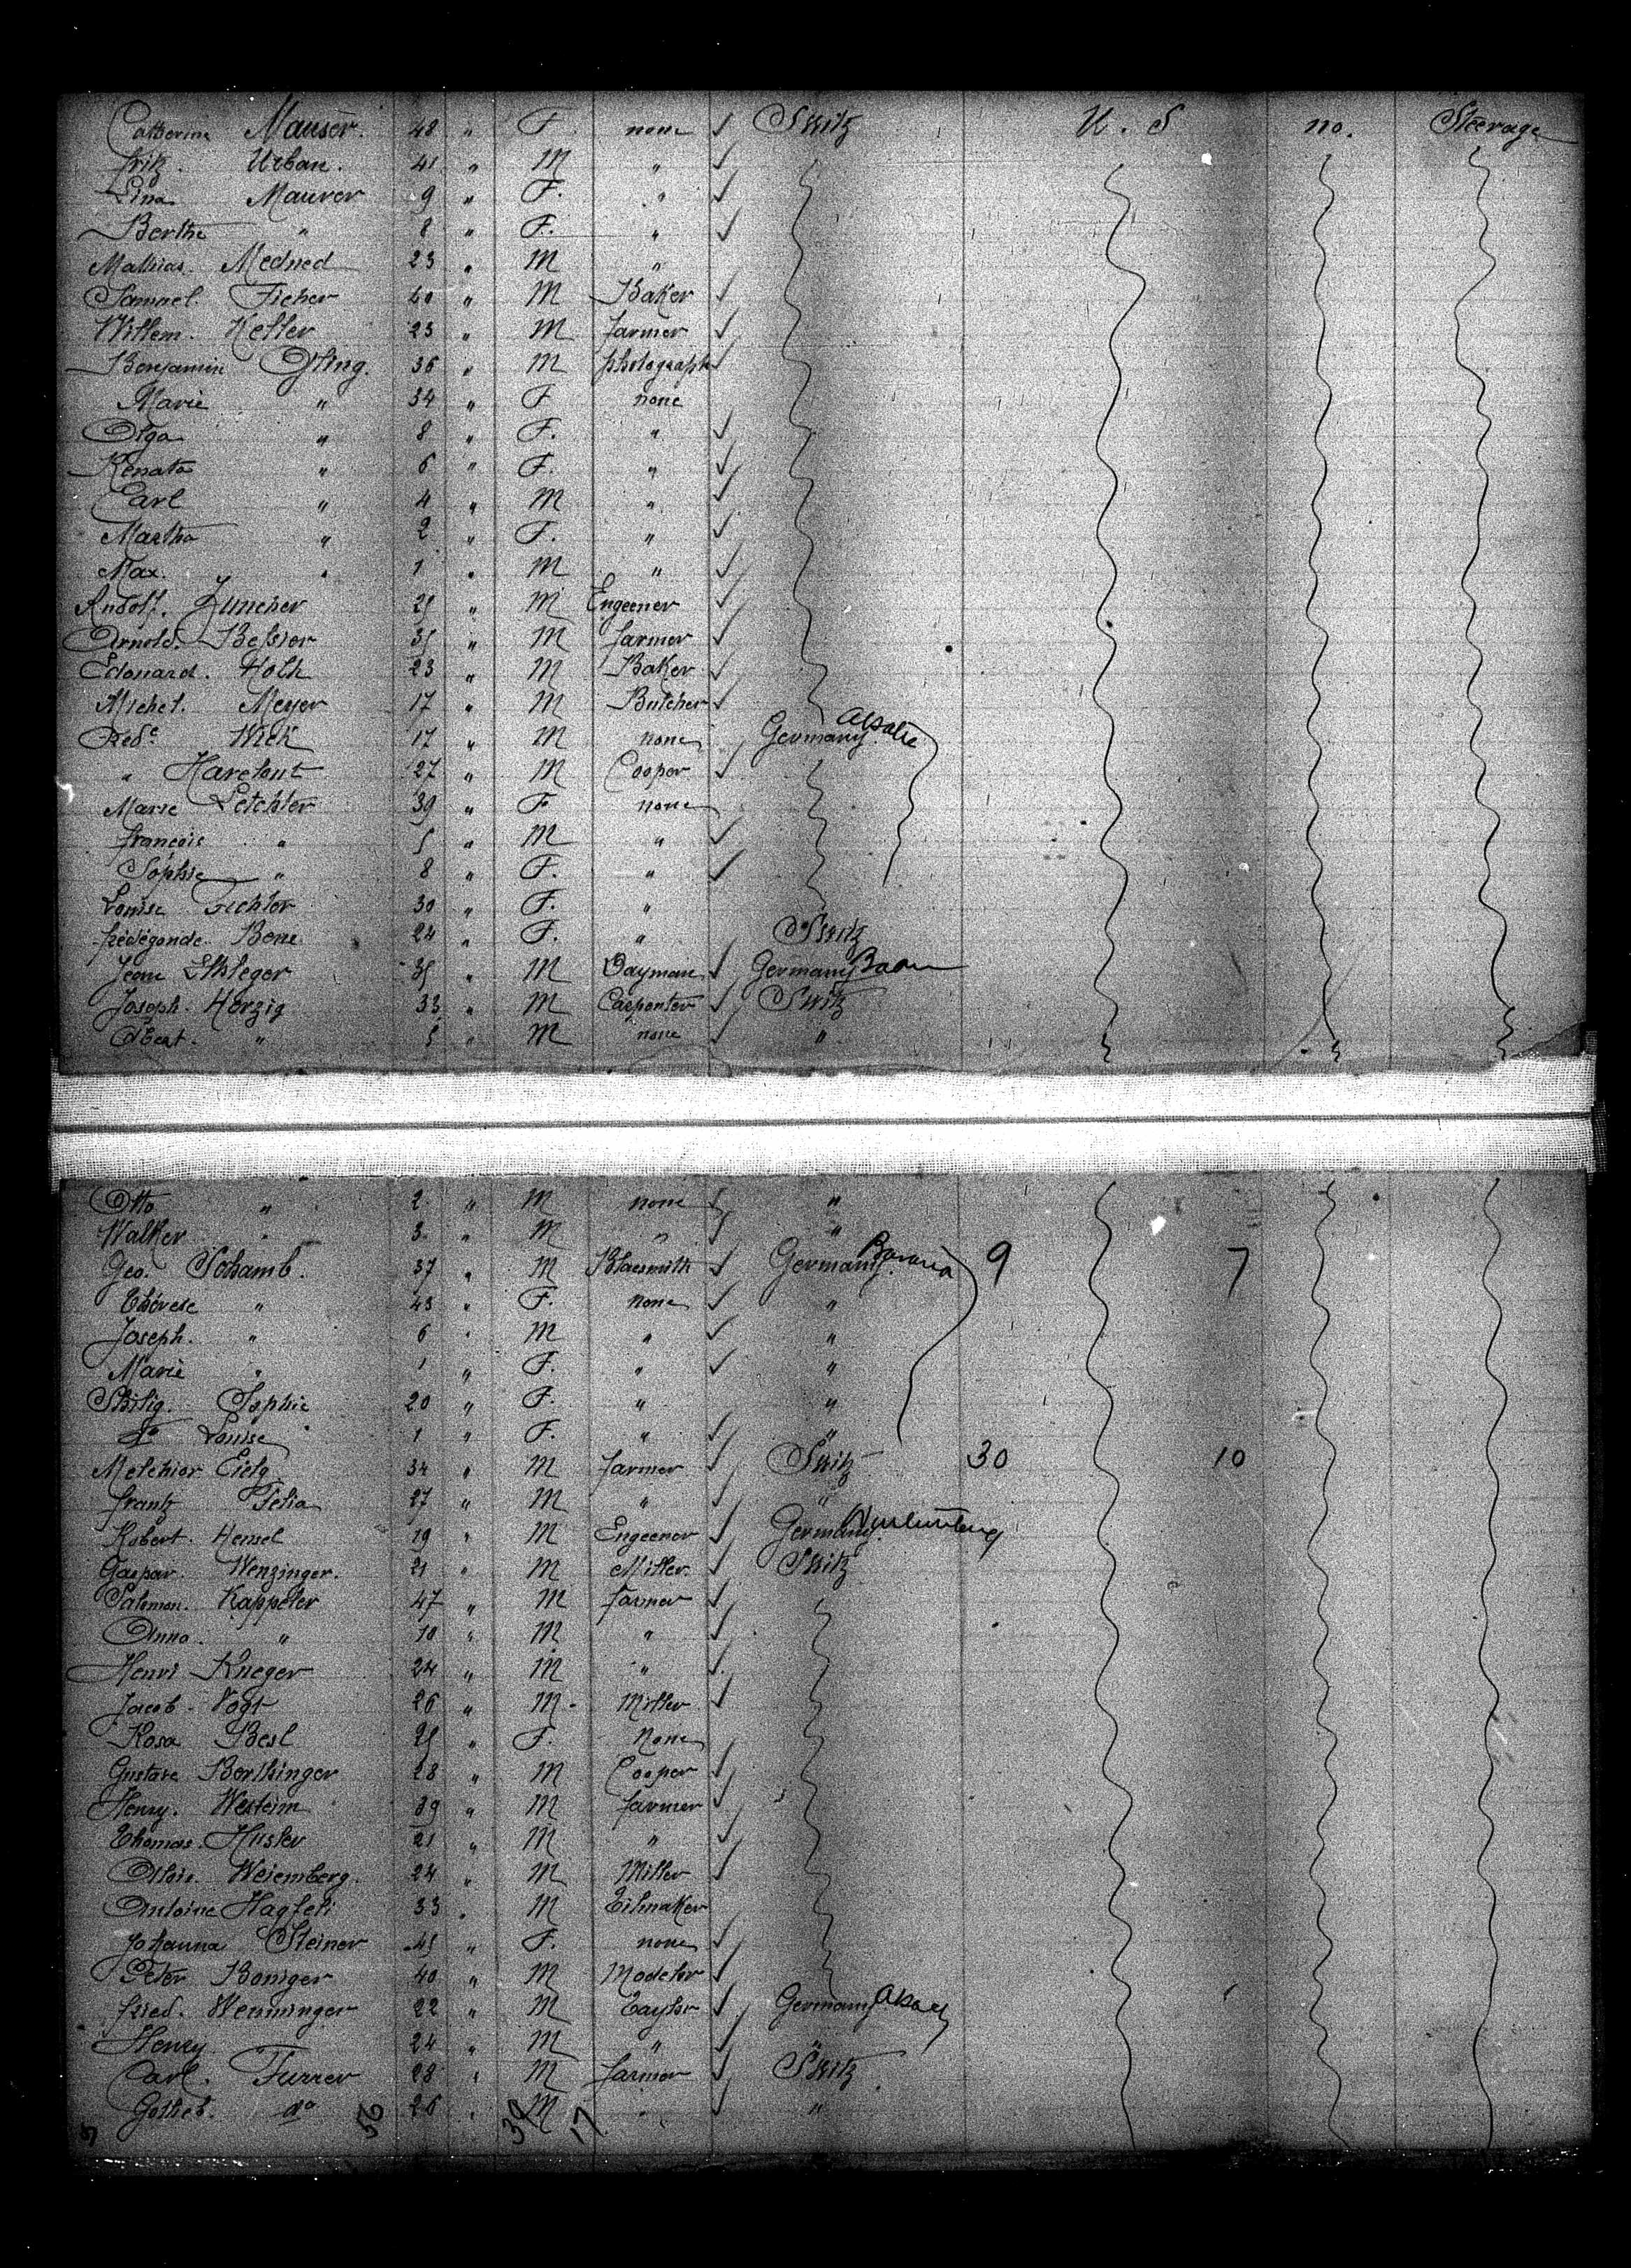 Catherine Mauser. 48 " F none ✓ Switz U. S no. Steerage
Fritz. Urban. 41 " M " ✓
Lina Maurer 9 " F. " ✓
Berthe " 8 " F. " ✓
Mathias. Medned 23 " M "
Samuel. Ficher 40 " M Baker ✓
Willem. Keller 23 " M farmer ✓
Benjamin 36 " M photograph ✓
Marie " 34 " F none
Olga " 8 " F. " ✓
Renata " 6 " F. " ✓
Carl " 4 " M " ✓
Martha " 2 " F. " ✓
Max. " 1 " M " ✓
Rudolf. Zuncher 29 " M Engeener ✓
Arnold. Bessier 35 " M farmer ✓
Edouard. Hoth 23 " M Baker ✓
Michel. Meyer 17 " M Butcher ✓
Wick 17 " M none Germany. Alsatie
" 27 " M Cooper ✓
Marie Letchter 39 " F none
François " 5 " M " ✓
Sophie " 8 " F. " ✓
Louise Fichter 30 " F. "
Frédégonde. Bone 24 " F. " Switz
Jean 35 " M Dayman ✓ Germany Baden
Joseph. Herzig 33 " M Carpenter ✓ Switz
" 5 " M none ✓ "
Otto " 2 " M none ✓ "
Walker " 3 " M " ✓ "
Geo. Schamb. 37 " M Blacsmith ✓ Germany. Bavaria 9 7
Thérese " 43 " F. none ✓ "
Joseph. " 6 " M " ✓ "
Marie " 1 " F. " ✓ "
Sophie 20 " F. " "
Louise 1 " F. " ✓ "
Melchior 34 " M farmer ✓ Switz 30 10
Frantz Felia 27 " M " ✓ "
Robert. Hensel 19 " M Engeener ✓ Germany.
Gaspar. Wenzinger. 21 " M Miller. ✓ Switz
Salomon. Kappeler 47 " M farmer ✓
Anna. " 10 " M " ✓
Henri Krieger 24 " M " ✓
Jacob. Vogt 26 " M. Miller ✓
Rosa Besl 25 " F. None
Gustave Berthinger 28 " M Cooper ✓
Henry. Westeim 39 " M farmer ✓
Thomas. Husler 21 " M " ✓
Weiemberg. 24 " M Miller ✓
Antoine Hagfeli 33 " M Tilmaker
Johanna Steiner 45 " F. none ✓
Peter Boniger 40 " M Modeler ✓
Fried. Wenninger 22 " M Taylor ✓ Germany
Henry 24 " M " ✓ "
Carl. Furrer 28 " M farmer ✓ Switz
Gottlieb. do 26 " M " ✓ "
56 39 17